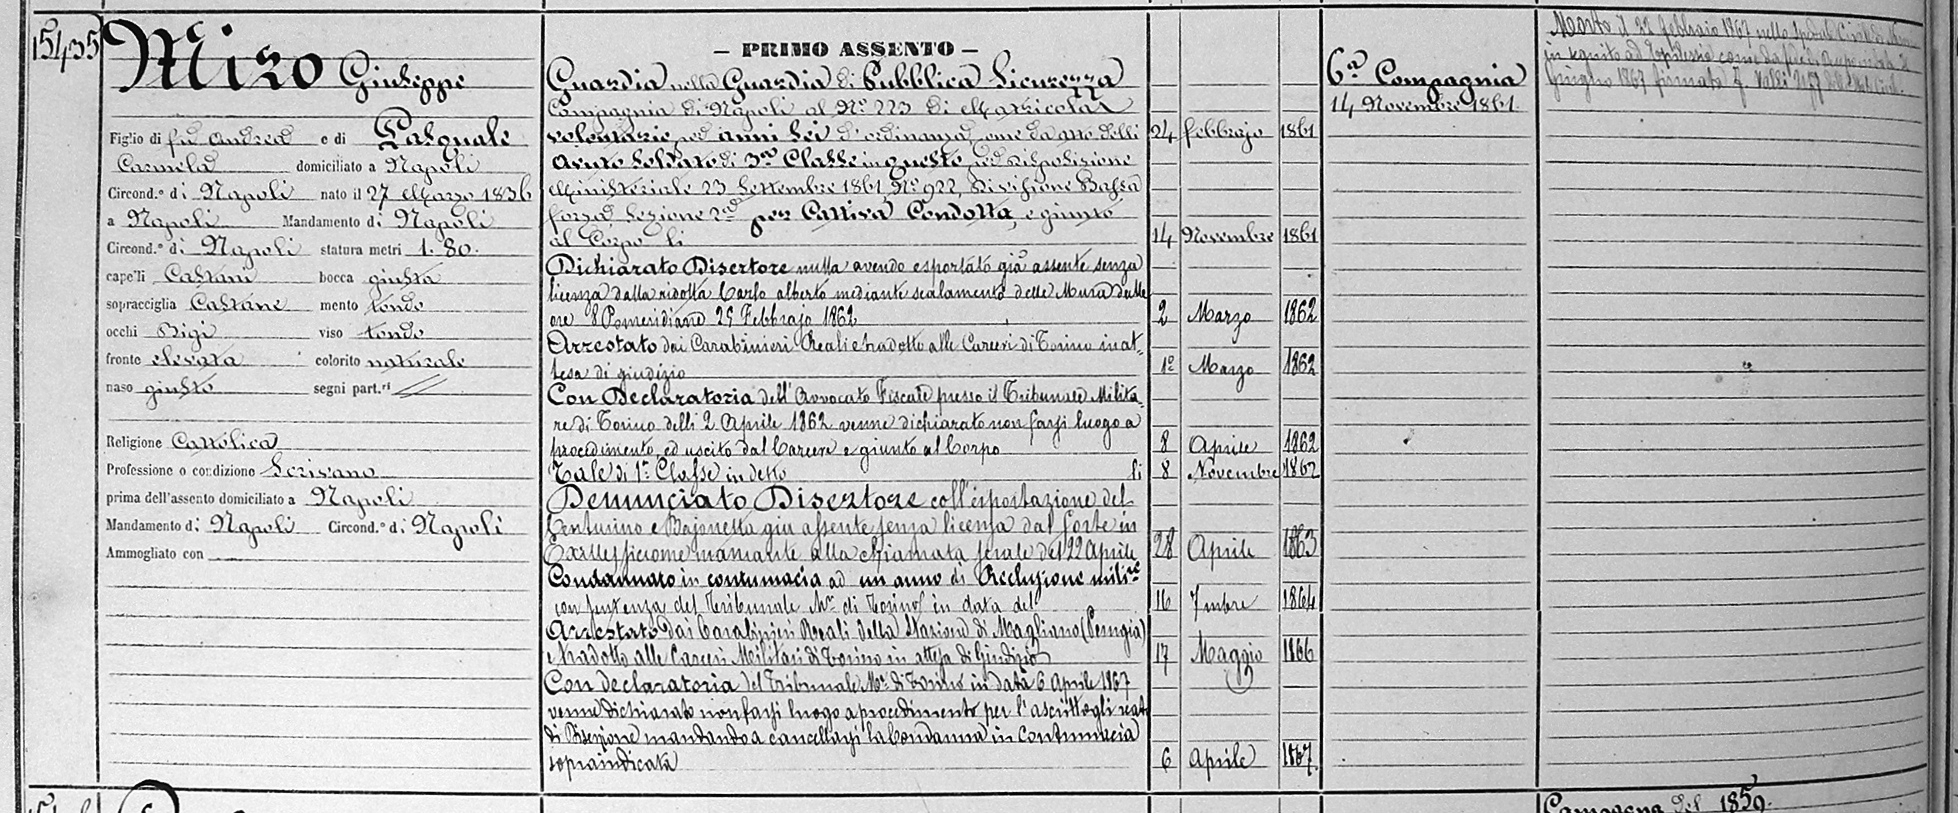 15435
Mizo Giuseppe
Figlio di fu Andrea e di Pasquale
Carmela domiciliato a Napoli
Circond.º di Napoli nato il 27 Marzo 1836
a Napoli Mandamento di Napoli
Circond.º di Napoli statura metri 1.80.
capelli Castani bocca giusta
sopracciglia Castane mento tondo
occhi Bigi viso tondo
fronte elevata colorito naturale
naso giusto segni part.ri
Religione Cattolica
Professione o condizione Scrivano
prima dell'assento domiciliato a Napoli
Mandamento di Napoli Circond.º di Napoli
Ammogliato con
– PRIMO ASSENTO –
Guardia nella Guardia di Pubblica Sicurezza
Compagnia di Napoli al Nº 223 di Matricola
volontario per anni sei d'ordinanza, come da atto delli 24 febbrajo 1861
Avuto Soldato di 3ª Classe in questo, per disposizione
Ministeriale 23 Settembre 1861 Nº 922, Divisione Bassa
forza Sezione 2ª per Cattiva Condotta, e giunto
al Corpo li 14 Novembre 1861
Dichiarato Disertore nulla avendo esportato già assente senza
licenza dalla ridotta Carlo alberto mediante scalamento delle Mura dalle
ore 8 Pomeridiane 25 Febbrajo 1862 2 Marzo 1862
Arrestato dai Carabinieri Reali e tradotto alle Carceri di Torino in at-
tesa di giudizio 1º Marzo 1862
Con Declaratoria dell'Avvocato Fiscale presso il Tribunale Milita-
re di Torino delli 2 Aprile 1862 venne dichiarato non farsi luogo a
procedimento, ed uscito dal Carcere e giunto al Corpo 8 Aprile 1862
Tale di 1ª Classe in detto li 8 Novembre 1862
Denunciato Disertore coll'esportazione del
Centurino e Bajonetta già assente senza licenza dal forte in
mancante alla chiamata serale del 22 Aprile 28 Aprile 1863
Condannato in contumacia ad un anno di Reclusione milire
con sentenza del Tribunale Mre di Torino in data del 16 7mbre 1864
Arrestato dai Carabinieri Reali della Stazione di Magliano (Perugia)
e tradotto alle Carceri Militari di Torino in attesa di Giudizio 17 Maggio 1866
Con declaratoria del Tribunale Mre di Torino in data 6 Aprile 1867
venne dichiarato non farsi luogo a procedimento per l'ascrittogli reato
di Diserzione mandando a cancellarsi la Condanna in Contumacia
sopraindicata 6 Aprile 1867.
6ª Compagnia
14 Novembre 1861.
Morto il 22 febbraio 1867 nello Spedale Civile di
in seguito ad come da fede
Giugno 1867 firmata
Campagna del 1859.